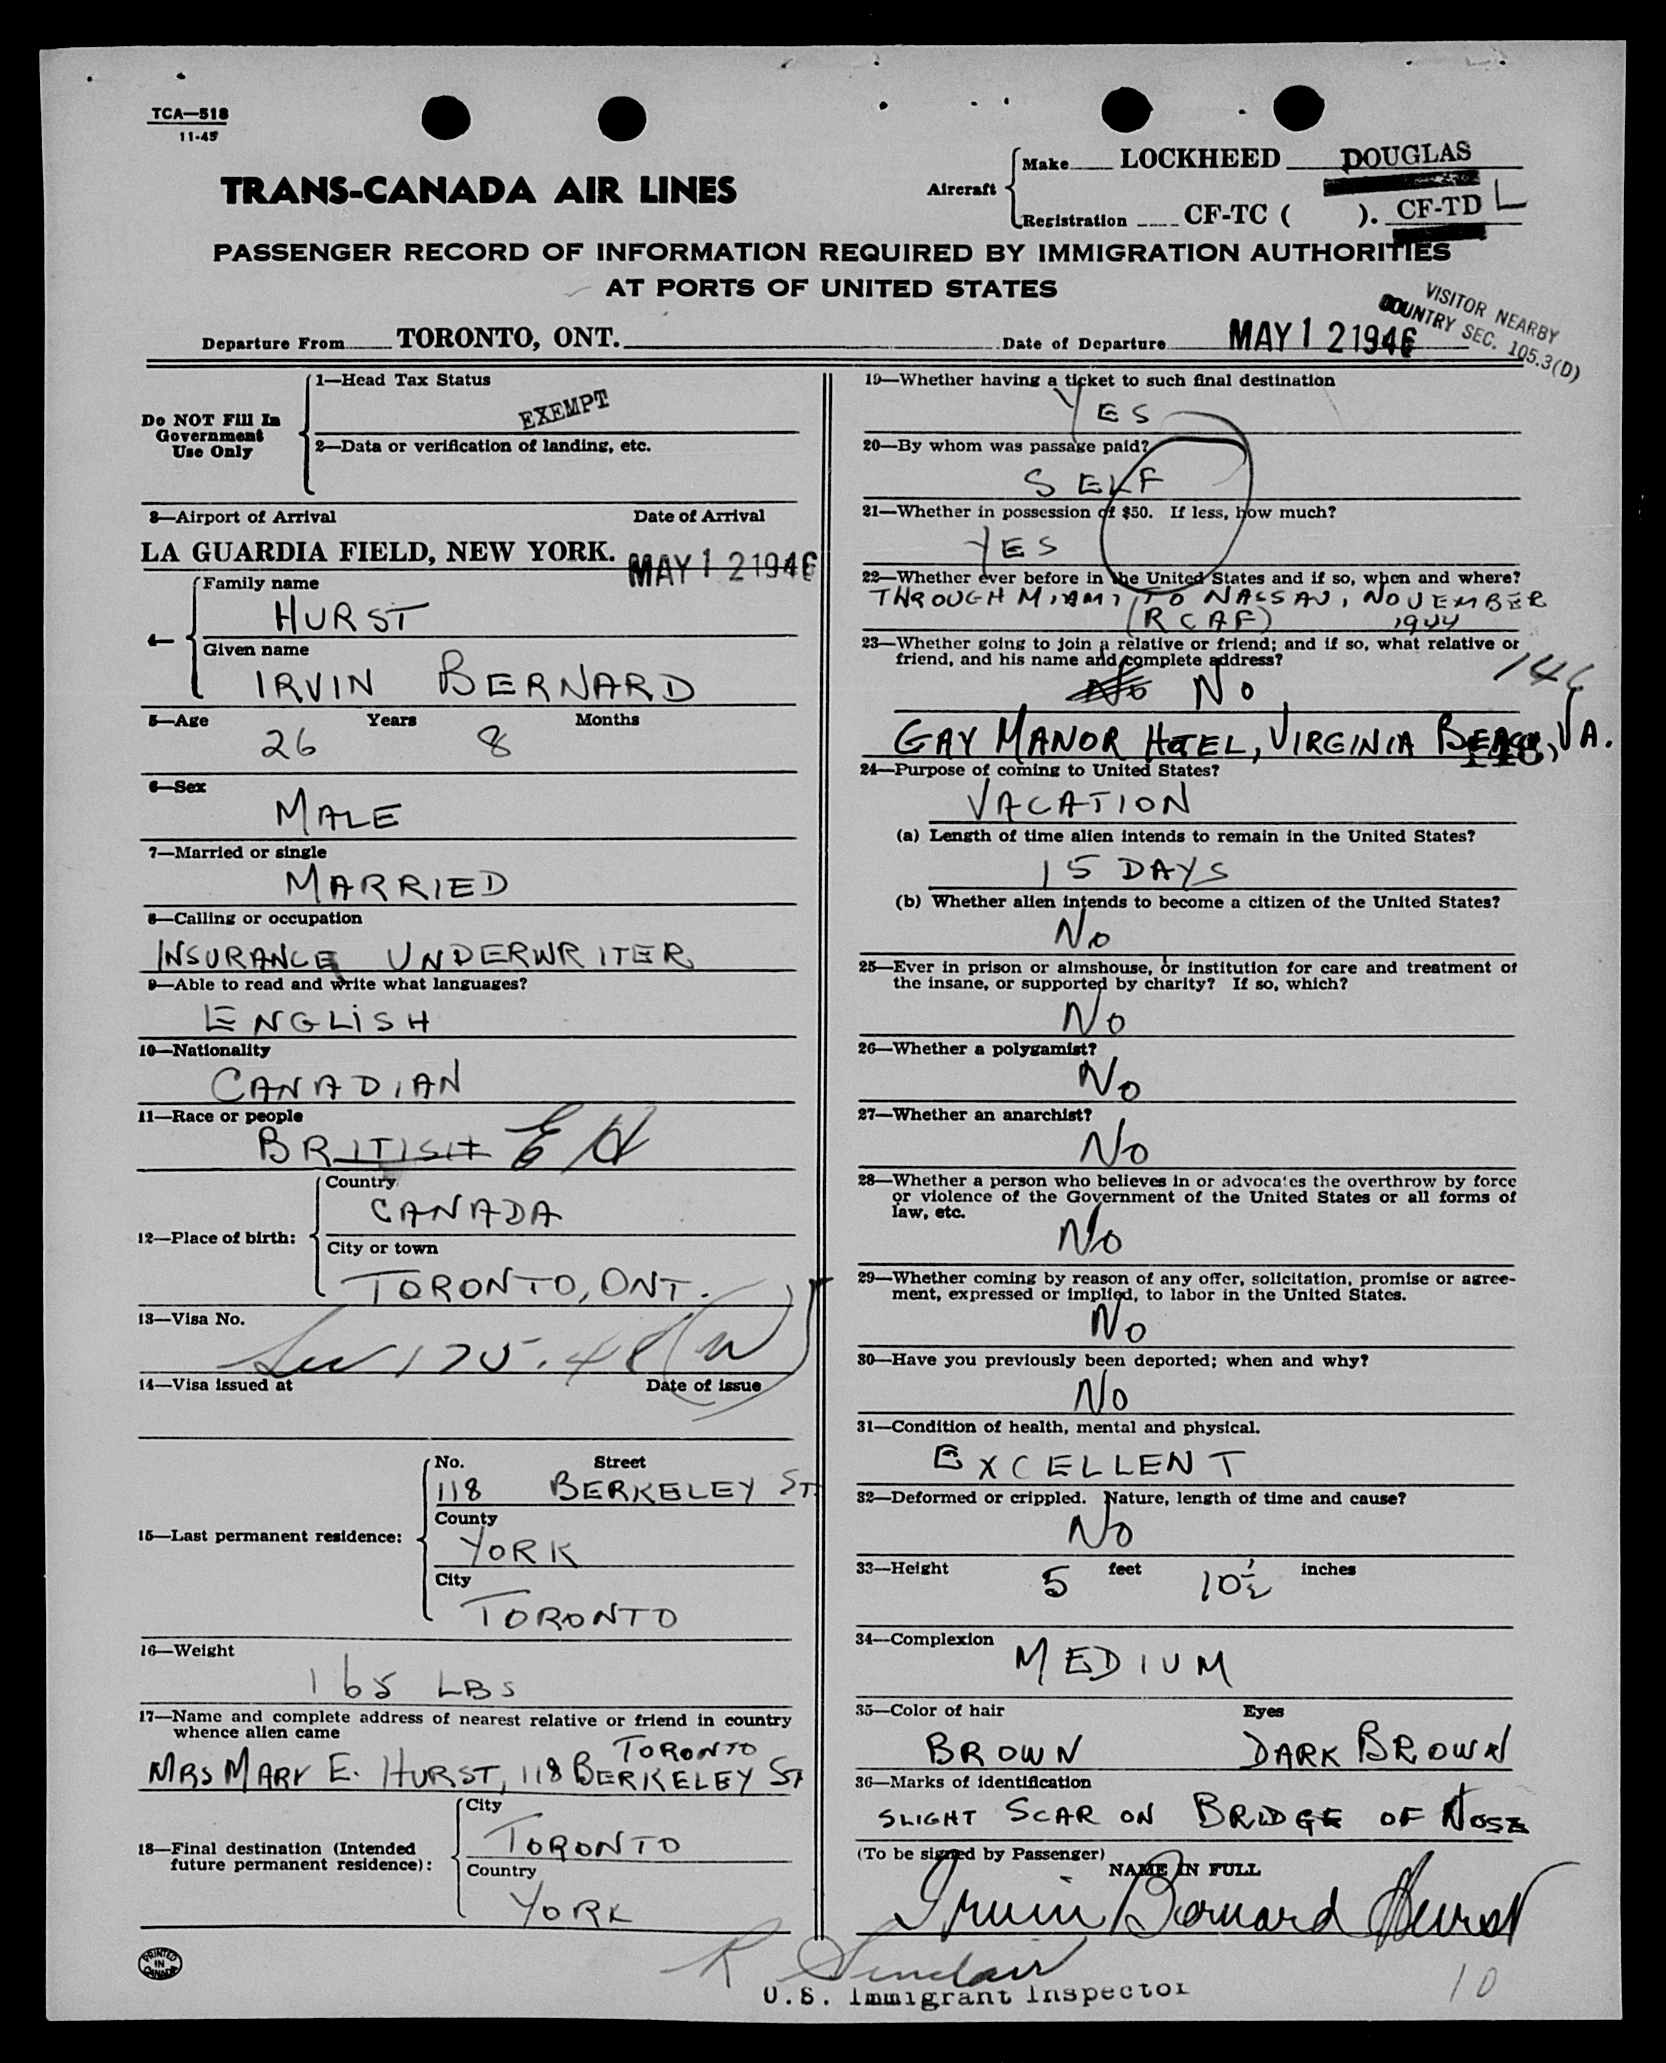 TCA—518
11-45
TRANS-CANADA AIR LINES
Aircraft
Make LOCKHEED DOUGLAS
Registration CF-TC ( ). CF-TD L
PASSENGER RECORD OF INFORMATION REQUIRED BY IMMIGRATION AUTHORITIES
AT PORTS OF UNITED STATES
VISITOR NEARBY
COUNTRY SEC. 105.3(D)
Departure From TORONTO, ONT. Date of Departure MAY 12 1946
Do NOT Fill In
Government
Use Only
1—Head Tax Status
EXEMPT
2—Data or verification of landing, etc.
3—Airport of Arrival Date of Arrival
LA GUARDIA FIELD, NEW YORK. MAY 12 1946
4—
Family name
HURST
Given name
IRVIN BERNARD
5—Age Years Months
26 8
6—Sex
MALE
7—Married or single
MARRIED
8—Calling or occupation
INSURANCE UNDERWRITER
9—Able to read and write what languages?
ENGLISH
10—Nationality
CANADIAN
11—Race or people
BRITISH
12—Place of birth:
Country
CANADA
City or town
TORONTO, ONT.
13—Visa No.
175.48
14—Visa issued at Date of issue
15—Last permanent residence:
No. Street
118 BERKELEY ST.
County
YORK
City
TORONTO
16—Weight
165 LBS
17—Name and complete address of nearest relative or friend in country
whence alien came
TORONTO
MRS MARY E. HURST, 118 BERKELEY ST
18—Final destination (Intended
future permanent residence):
City
TORONTO
Country
YORK
PRINTED
IN
CANADA
19—Whether having a ticket to such final destination
YES
20—By whom was passage paid?
SELF
21—Whether in possession of $50. If less, how much?
YES
22—Whether ever before in the United States and if so, when and where?
THROUGH MIAMI, TO NASSAU, NOVEMBER
(RCAF) 1944
23—Whether going to join a relative or friend; and if so, what relative or
friend, and his name and complete address?
146
No No
GAY MANOR HOTEL, VIRGINIA BEACH, VA.
24—Purpose of coming to United States?
VACATION
(a) Length of time alien intends to remain in the United States?
15 DAYS
(b) Whether alien intends to become a citizen of the United States?
No
25—Ever in prison or almshouse, or institution for care and treatment of
the insane, or supported by charity? If so, which?
No
26—Whether a polygamist?
No
27—Whether an anarchist?
No
28—Whether a person who believes in or advocates the overthrow by force
or violence of the Government of the United States or all forms of
law, etc.
No
29—Whether coming by reason of any offer, solicitation, promise or agree-
ment, expressed or implied, to labor in the United States.
No
30—Have you previously been deported; when and why?
No
31—Condition of health, mental and physical.
EXCELLENT
32—Deformed or crippled. Nature, length of time and cause?
No
33—Height 5 feet 10½ inches
34—Complexion
MEDIUM
35—Color of hair Eyes
BROWN DARK BROWN
36—Marks of identification
SLIGHT SCAR ON BRIDGE OF NOSE
(To be signed by Passenger)
NAME IN FULL
Irvin Bernard Hurst
R Sinclair
U.S. Immigrant Inspector
10